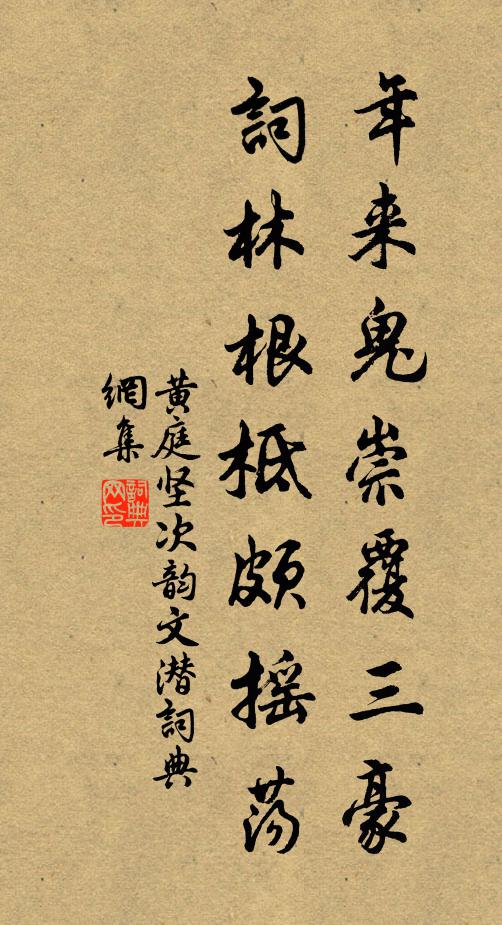 年来鬼崇覆三豪
詞林根柢頗摇荡
黄庭坚次韵文潜詞典
網集
詞典
网印